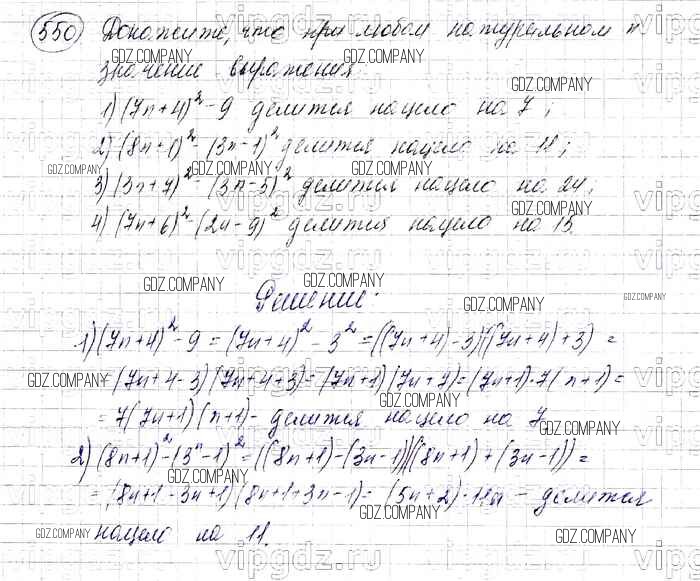 550 Докажите, что при любом натуральном n
значение выражения:
1) (7n+4)² - 9 делится нацело на 7;
2) (8n+1)² - (3n-1)² делится нацело на 11;
3) (3n+7)² - (3n-5)² делится нацело на 24;
4) (7n+6)² - (2n-9)² делится нацело на 15.
Решение:
1) (7n+4)² - 9 = (7n+4)² - 3² = ((7n+4)-3)((7n+4)+3) =
= (7n+4-3)(7n+4+3) = (7n+1)(7n+7) = (7n+1)·7(n+1) =
= 7(7n+1)(n+1) - делится нацело на 7
2) (8n+1)² - (3n-1)² = ((8n+1)-(3n-1))((8n+1)+(3n-1)) =
= (8n+1-3n+1)(8n+1+3n-1) = (5n+2)·11n - делится
нацело на 11.
GDZ.COMPANY
vipgdz.ru